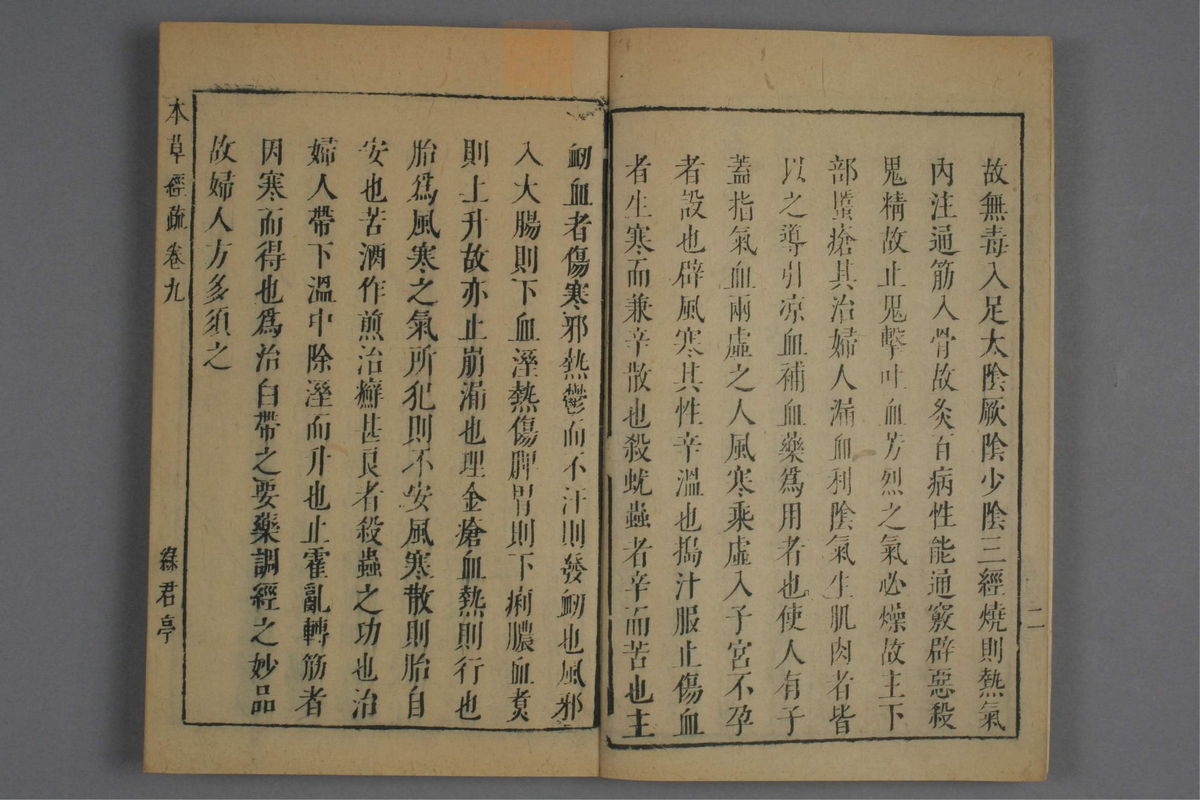 故無毒入足太陰厥陰少陰三經燒則熱氣
內注通筋入骨故灸百病性能通竅辟惡殺
鬼精故止鬼擊吐血芳烈之氣必燥故主下
部䘌瘡其治婦人漏血利陰氣生肌肉者皆
以之導引凉血補血藥爲用者也使人有子
蓋指氣血兩虛之人風寒乘虛入子宮不孕
者設也辟風寒其性辛溫也搗汁服止傷血
者生寒而兼辛散也殺蚘蟲者辛而苦也主
衂血者傷寒邪熱鬱而不汗則發衂也風邪
入大腸則下血溼熱傷脾胃則下痢膿血煑
則上升故亦止崩漏也理金瘡血熱則行也
胎爲風寒之氣所犯則不安風寒散則胎自
安也苦酒作煎治癬甚良者殺蟲之功也治
婦人帶下溫中除溼而升也止霍亂轉筋者
因寒而得也爲治白帶之要藥調經之妙品
故婦人方多須之
本草經疏卷九
綠君亭
二